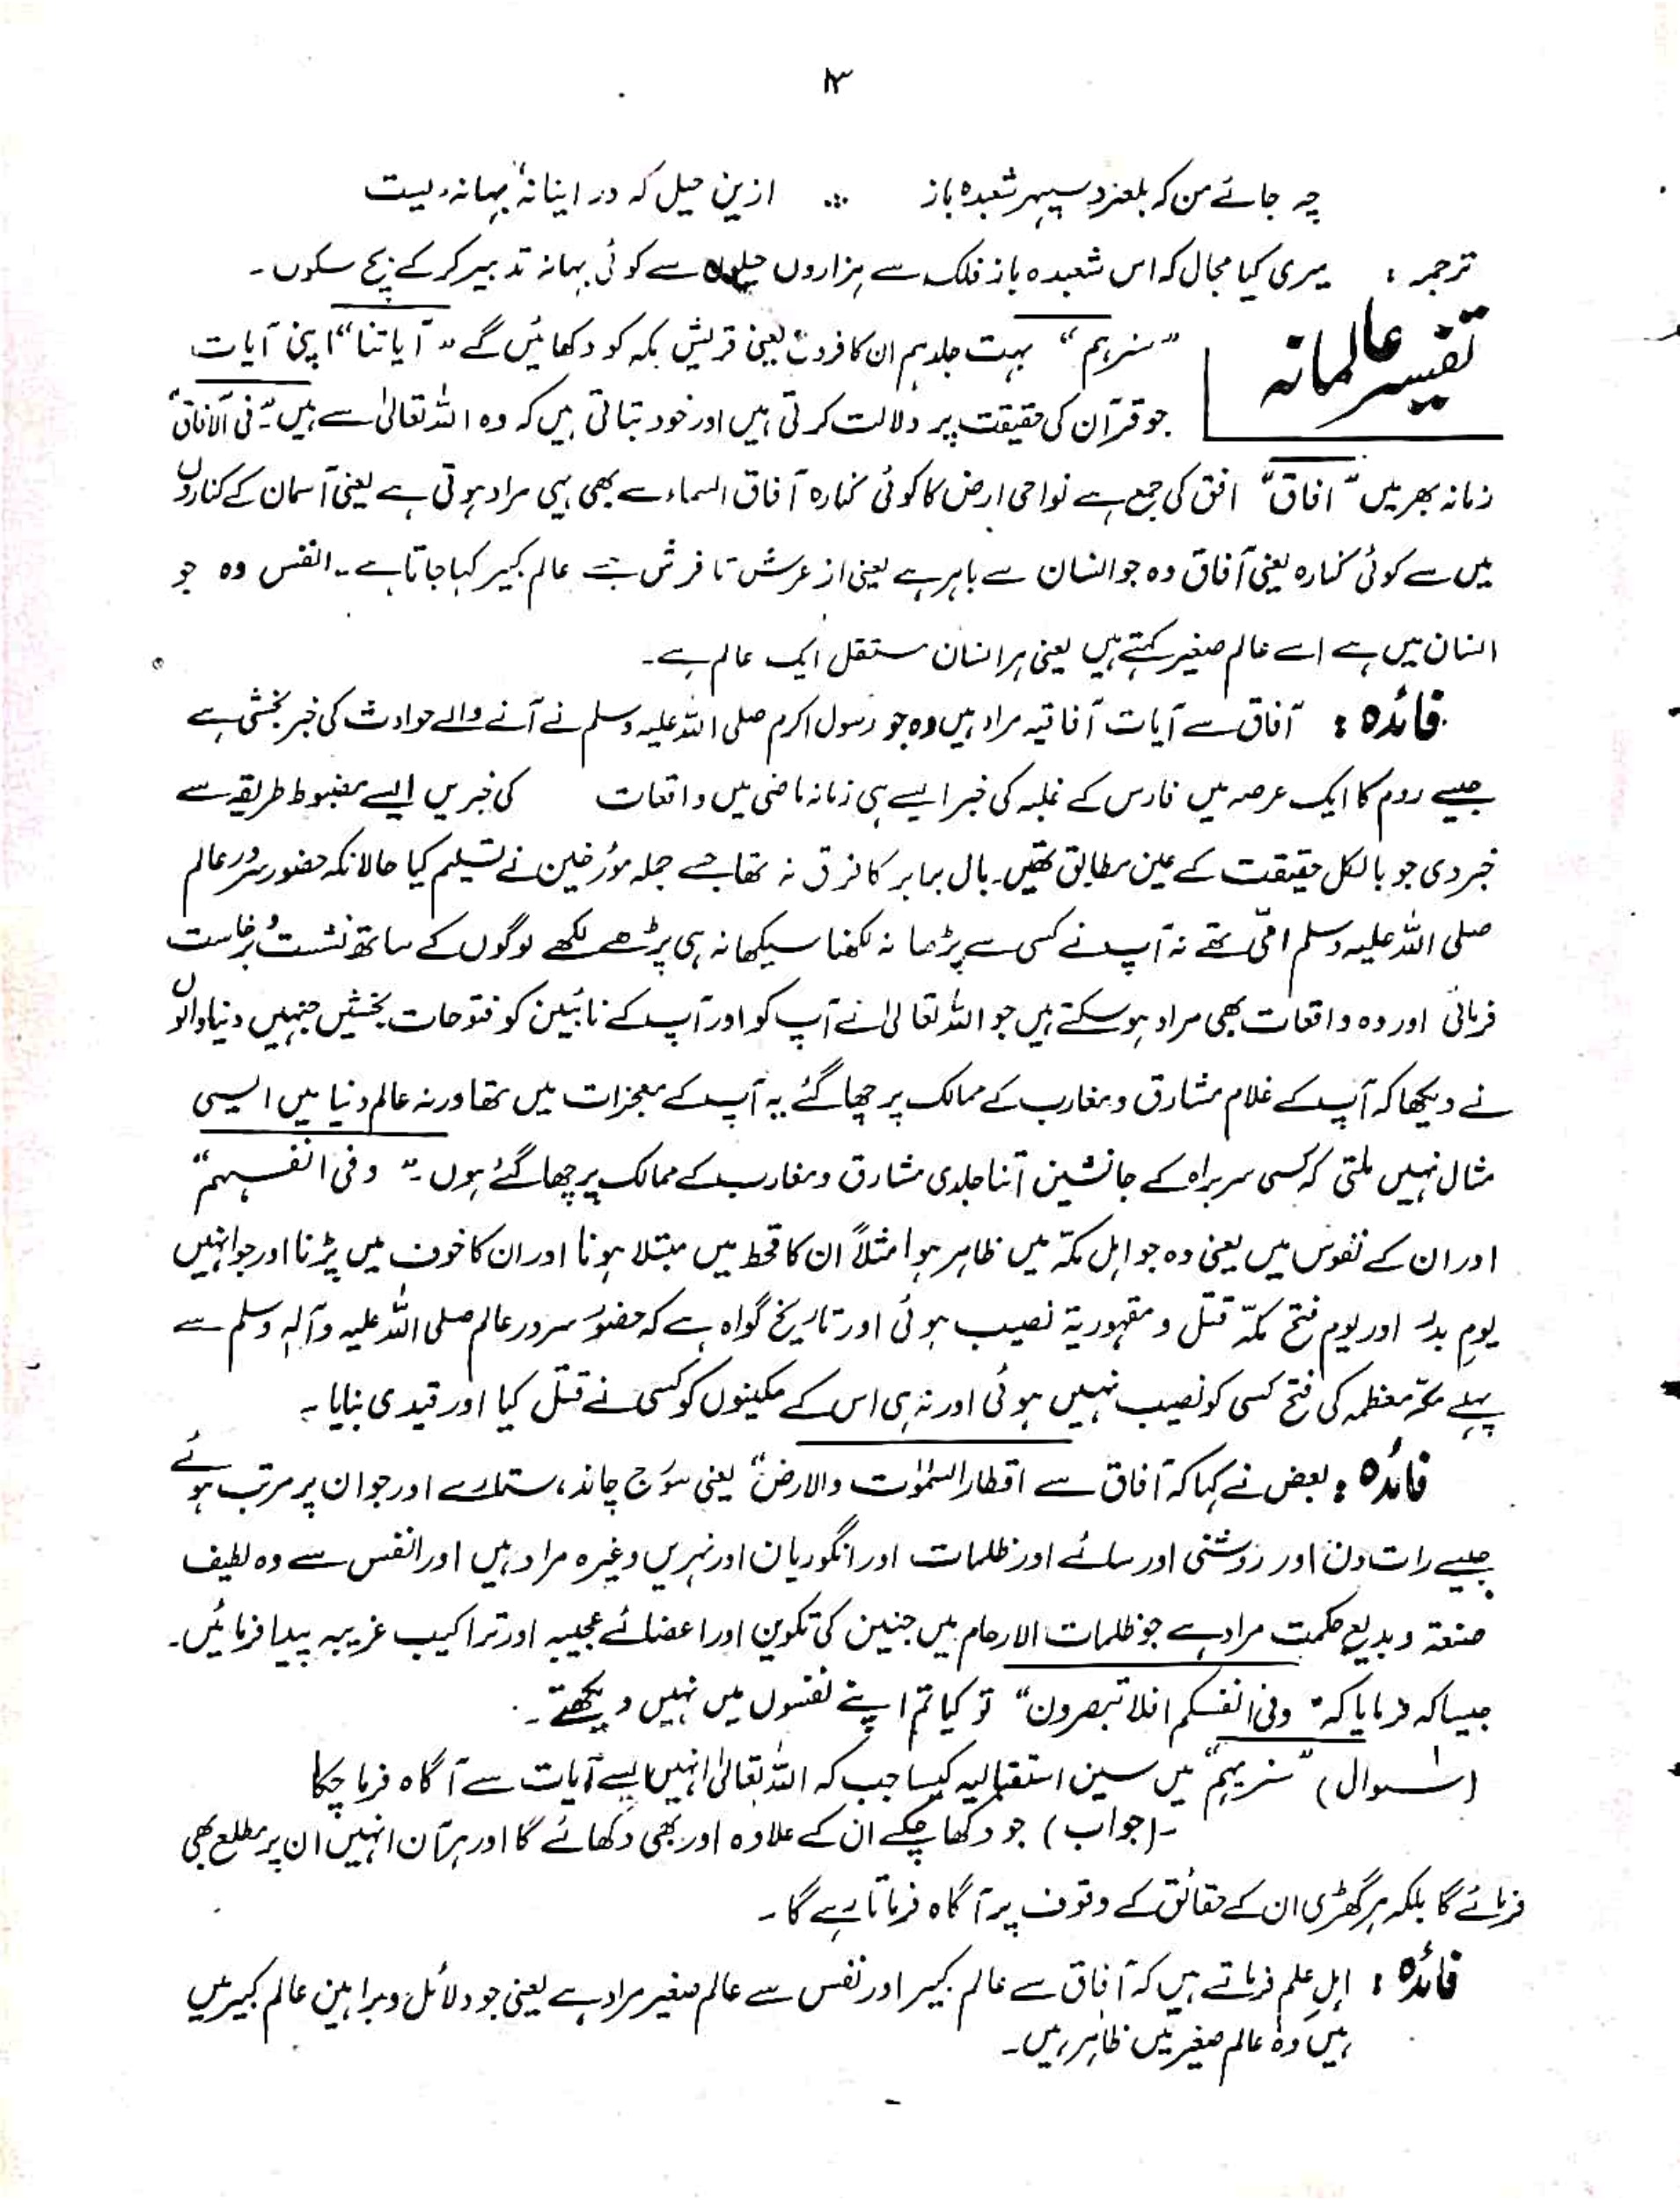 ۱۳
چہ جائے من کہ بلغزد سپہر شعبدہ باز ∴ ازین حیل کہ در اینانہ بہانہ ایست
ترجمہ : میری کیا مجال کہ اس شعبدہ باز فلک سے ہزاروں حیلوں سے کوئی بہانہ تدبیر کرکے بچ سکوں۔
تفسیر عالمانہ
”سنریہم“ بہت جلد ہم ان کافروں یعنی قریش مکہ کو دکھائیں گے ”آیاتنا“ اپنی آیات
جو قرآن کی حقیقت پر دلالت کرتی ہیں اور خود بتاتی ہیں کہ وہ اللہ تعالیٰ سے ہیں۔ ”فی الآفاق“
زمانہ بھر میں ”آفاق“ افق کی جمع ہے نواحی ارض کا کوئی کنارہ آفاق السماء سے بھی یہی مراد ہوتی ہے یعنی آسمان کے کناروں
میں سے کوئی کنارہ یعنی آفاق وہ جو انسان سے باہر ہے یعنی از عرش تا فرش جسے عالم کبیر کہا جاتا ہے۔ انفس وہ جو
انسان میں ہے اسے عالم صغیر کہتے ہیں یعنی ہر انسان مستقل ایک عالم ہے۔
فائدہ : آفاق سے آیات آفاقیہ مراد ہیں وہ جو رسول اکرم صلی اللہ علیہ وسلم نے آنے والے حوادث کی خبر بخشی ہے
جیسے روم کا ایک عرصہ میں فارس کے غلبہ کی خبر ایسے ہی زمانہ ماضی میں واقعات کی خبریں ایسے مضبوط طریقہ سے
خبر دی جو بالکل حقیقت کے عین مطابق تھیں۔ بال برابر کا فرق نہ تھا جسے جملہ مؤرخین نے تسلیم کیا حالانکہ حضور سرور عالم
صلی اللہ علیہ وسلم امّی تھے نہ آپ نے کسی سے پڑھا نہ لکھنا سیکھا نہ ہی پڑھے لکھے لوگوں کے ساتھ نشست و برخاست
فرمائی اور وہ واقعات بھی مراد ہو سکتے ہیں جو اللہ تعالیٰ نے آپ کو اور آپ کے نائبین کو فتوحات بخشیں جنہیں دنیا والوں
نے دیکھا کہ آپ کے غلام مشارق و مغارب کے ممالک پر چھا گئے یہ آپ کے معجزات میں تھا ورنہ عالم دنیا میں ایسی
مثال نہیں ملتی کہ کسی سربراہ کے جانشین اتنا جلدی مشارق و مغارب کے ممالک پر چھا گئے ہوں۔ ”وفی انفسہم“
اور ان کے نفوس میں یعنی وہ جو اہل مکہّ میں ظاہر ہوا مثلاً ان کا قحط میں مبتلا ہونا اور ان کا خوف میں پڑنا اور جو انہیں
یوم بدر اور یوم فتح مکہّ قتل و مقہوریۃ نصیب ہوئی اور تاریخ گواہ ہے کہ حضور سرور عالم صلی اللہ علیہ وآلہٖ وسلم سے
پہلے مکہّ معظمہ کی فتح کسی کو نصیب نہیں ہوئی اور نہ ہی اس کے مکینوں کو کسی نے قتل کیا اور قیدی بنایا۔
فائدہ : بعض نے کہا کہ آفاق سے اقطار السمٰوٰت والارض“ یعنی سورج چاند، ستارے اور جو ان پر مرتب ہوئے
جیسے رات دن اور روشنی اور سائے اور ظلمات اور انگوریان اور نہریں وغیرہ مراد ہیں اور انفس سے وہ لطیف
صنعۃ و بدیع حکمت مراد ہے جو ظلمات الارحام میں جنین کی تکوین اور اعضائے عجیبہ اور تراکیب غریبہ پیدا فرمائیں۔
جیسا کہ فرمایا کہ ”وفی انفسکم افلا تبصرون“ تو کیا تم اپنے نفسوں میں نہیں دیکھتے۔
(سوال) ”سنریہم“ میں سین استقبالیہ کیسا جب کہ اللہ تعالیٰ انہیں ایسے آیات سے آگاہ فرما چکا
۔(جواب) جو دکھا چکے ان کے علاوہ اور بھی دکھائے گا اور ہر آن انہیں ان پر مطلع بھی
فرمائے گا بلکہ ہر گھڑی ان کے حقائق کے وقوف پر آگاہ فرماتا رہے گا۔
فائدہ : اہل علم فرماتے ہیں کہ آفاق سے عالم کبیر اور نفس سے عالم صغیر مراد ہے یعنی جو دلائل و براہین عالم کبیر میں
ہیں وہ عالم صغیر میں ظاہر ہیں۔